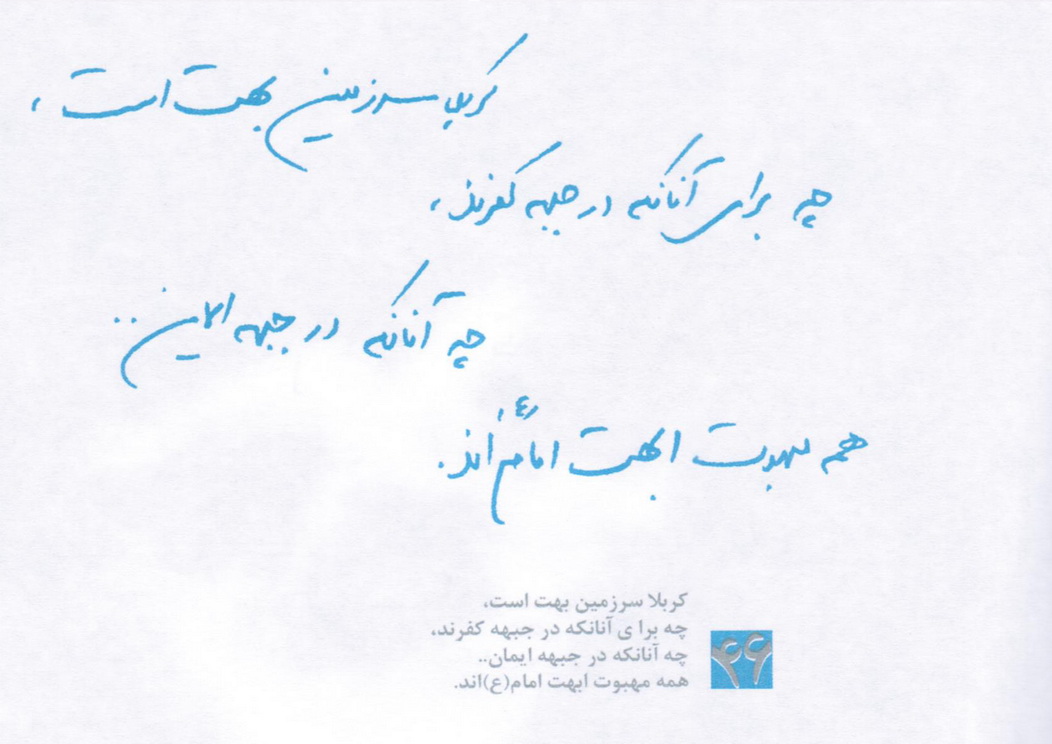 کربلا سرزمین بهت است،
چه برای آنانکه در جبهه کفرند،
چه آنانکه در جبهه ایمان..
همه مبهوت ابهت امام(ع)اند.
کربلا سرزمین بهت است،
چه برا ی آنانکه در جبهه کفرند،
چه آنانکه در جبهه ایمان..
همه مهبوت ابهت امام(ع)اند.
۴۶